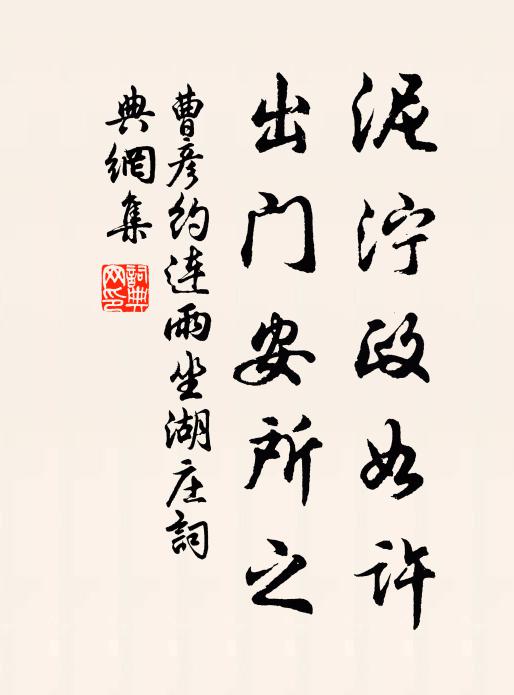 泥泞政如许
出门安所之
曹彦约连雨坐湖庄詞
典網集
詞典网印